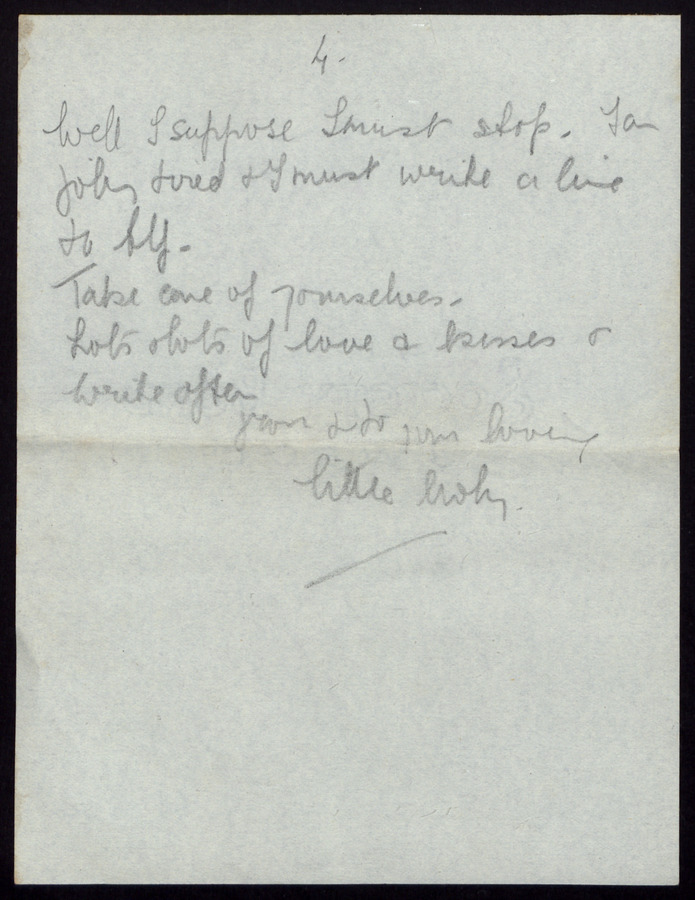 4.
Well I suppose I must stop. I am
jolly tired & I must write a line
to Alf.
Take care of yourselves.
Lots & lots of love & kisses &
write often
from & to your loving
little